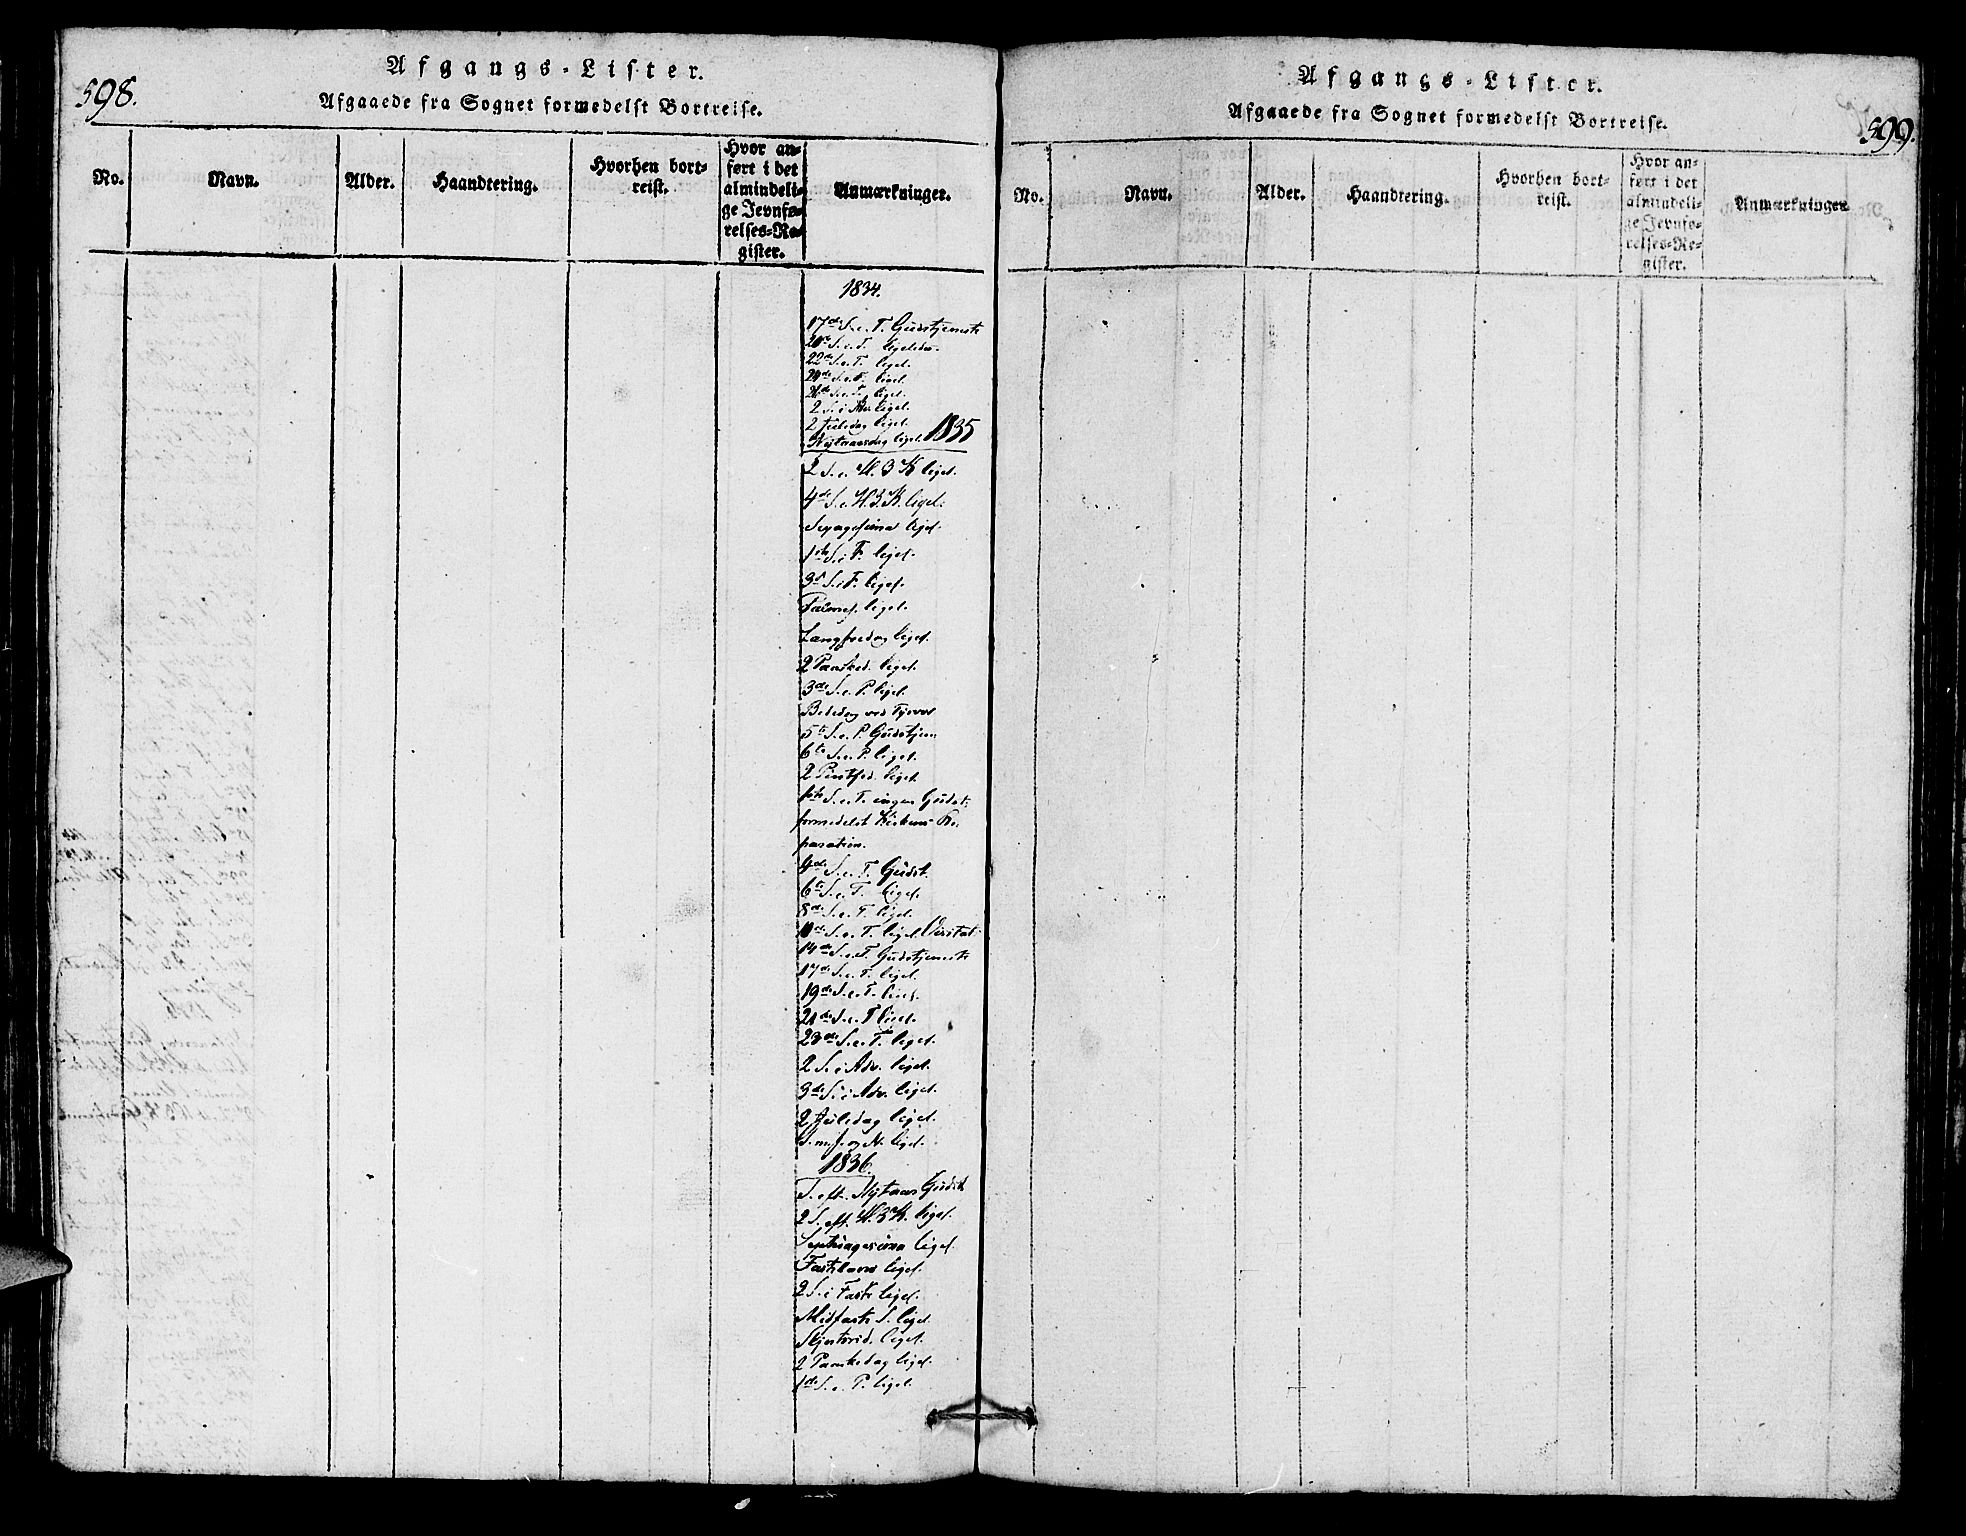 598.
Afgangs-Lister.
Afgaaede fra Sognet formedelst Bortreise.
No.
Navn.
Alder.
Haandtering.
Hvorhen bort-
reist.
Hvor an-
ført i det
almindeli-
ge Jevnfø-
relses-Re-
gister.
Anmærkninger.
1834.
17de S. e. T. Gudstjeneste
20de S. e. T. ligeledes.
22de S. e. T. ligel.
24de S. e. T. ligel.
26de S. e. T. ligel.
2 S. i Adv. ligel.
2 Juledag ligel.
Nytaarsdag ligel. 1835
2 S. e. H. 3 K ligel.
4de S. e. H. 3 K. ligel.
Sexagesima ligel.
1ste S. i F. ligel.
3die S. i F. ligel.
Palmes. ligel.
Langfredag ligel.
2 Paasked. ligel.
3die S. e. P. ligel.
Bededag ved
5te S. e. P. Gudstjen.
6te S. e. P. ligel.
2 Pintsed. ligel.
1ste S. e. T. ingen Gudst.
formedelst Kirkens Re-
paration.
4de S. e. T. Gudst.
6te S. e. T. ligel.
8de S. e. T. ligel.
10de S. e. T. ligel. Visitat.
14de S. e. T. Gudstjeneste
17de S. e. T. ligel.
19de S. e. T. ligel.
21de S. e. T. ligel.
23de S. e. T. ligel.
2 S. i Adv. ligel.
3die S. i Adv. ligel.
2 Juledag ligel.
S. m. J. og N. ligel.
1836.
S. eft. Nytaar Gudst
2 S. eft. H. 3 K. ligel.
Septuagesima ligel.
Fastelavn ligel.
2 S. i Faste ligel.
Midfaste S. ligel.
Skjertorsd. ligel.
2 Paaskedag ligel.
1ste S. e. P. ligel.
Afgangs-Lister.
Afgaaede fra Sognet formedelst Bortreise.
599.
No.
Navn.
Alder.
Haandtering.
Hvorhen bort-
reist.
Hvor an-
ført i det
almindeli-
ge Jevnfø-
relses-Re-
gister.
Anmærkninger.